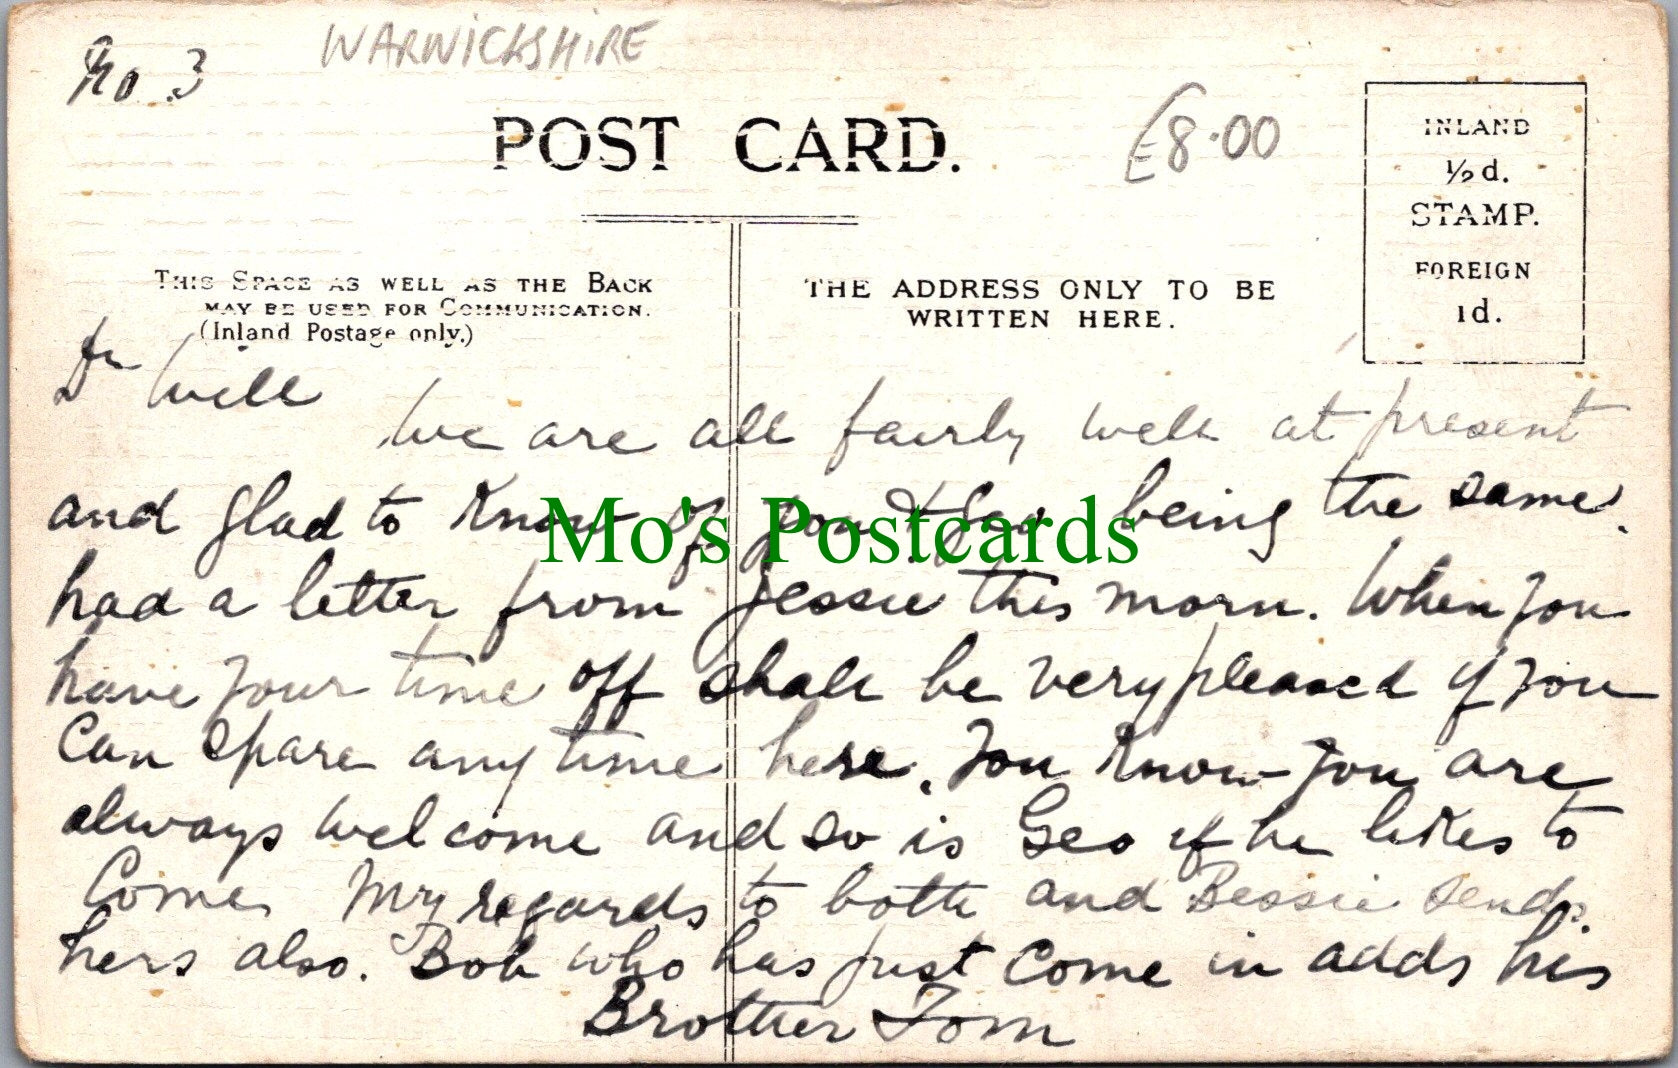 No. 3
WARWICKSHIRE
POST CARD.
£8.00
INLAND
½d.
STAMP.
FOREIGN
1d.
THIS SPACE AS WELL AS THE BACK
MAY BE USED FOR COMMUNICATION.
(Inland Postage only.)
THE ADDRESS ONLY TO BE
WRITTEN HERE.
Dr Will
We are all fairly well at present
and glad to know of you & Geo being the same.
had a letter from Jessie this morn. When you
have your time off shall be very pleased if you
can spare any time here. You know you are
always welcome and so is Geo if he likes to
come. My regards to both and Bessie sends
hers also. Bob who has just come in adds his
Brother Tom
Mo's Postcards